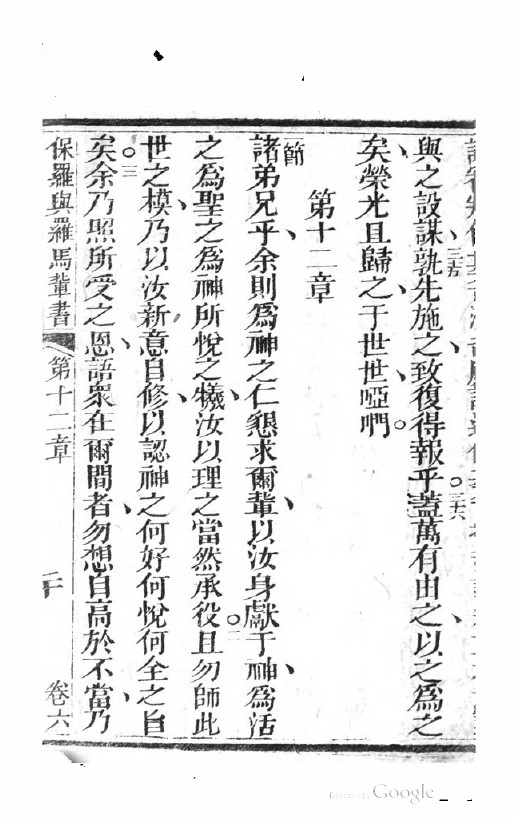 與之設謀孰先施之致復得報乎蓋萬有由之以之爲之
矣榮光且歸之于世世啞們
第十二章
一節
諸弟兄乎余則爲神之仁懇求爾輩以汝身獻于神爲活
之爲聖之爲神所悅之犧汝以理之當然承役且勿師此
世之模乃以汝新意自修以認神之何好何悅何全之旨
矣余乃照所受之恩語衆在爾間者勿想自高於不當乃
保羅與羅馬輩書 第十二章 二十 卷六
三五
三六
二
三
Digitized by Google